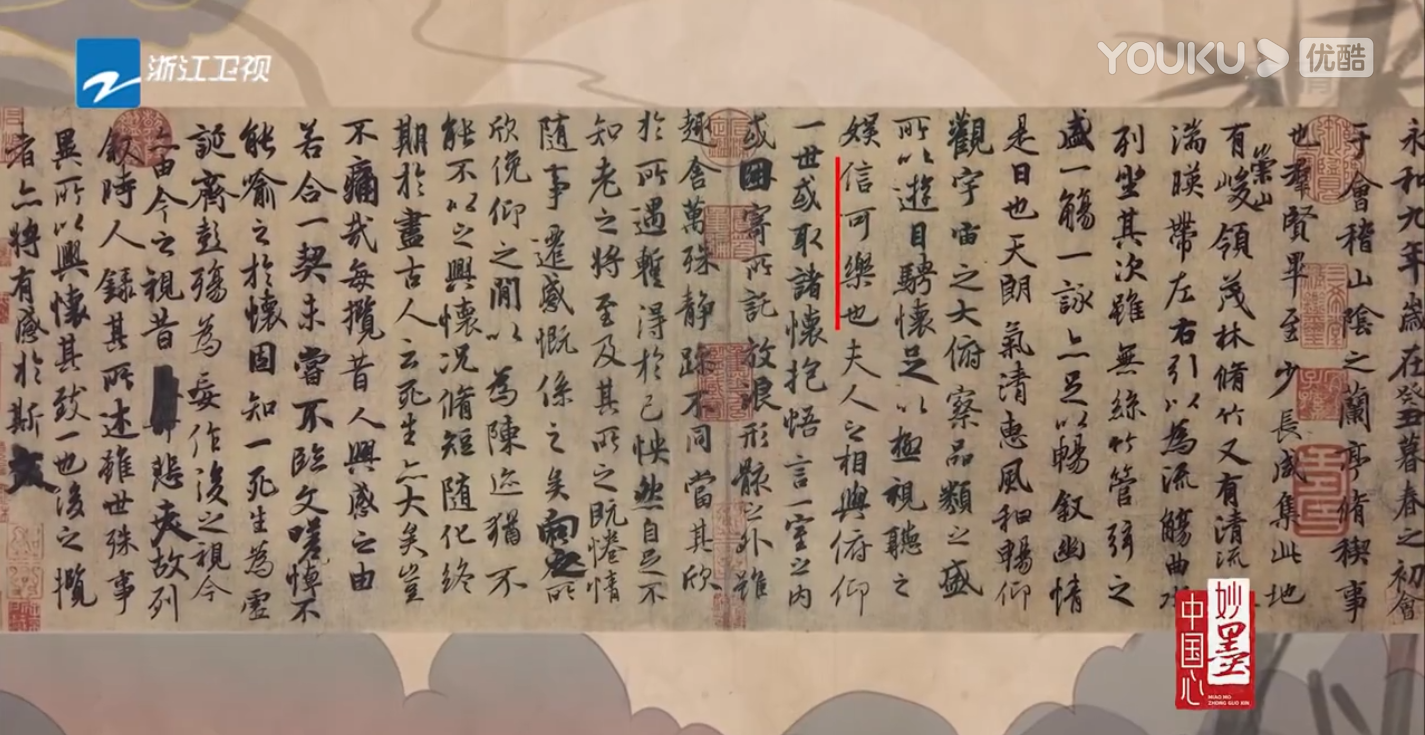 浙江卫视
YOUKU 优酷
永和九年歲在癸丑暮春之初會
于會稽山陰之蘭亭脩稧事
也羣賢畢至少長咸集此地
有崇山峻領茂林脩竹又有清流
湍暎帶左右引以為流觴曲水
列坐其次雖無絲竹管弦之
盛一觴一詠亦足以暢叙幽情
是日也天朗氣清惠風和暢仰
觀宇宙之大俯察品類之盛
所以遊目騁懷足以極視聽之
娛信可樂也夫人之相與俯仰
一世或取諸懷抱悟言一室之內
或因寄所託放浪形骸之外雖
趣舍萬殊靜躁不同當其欣
於所遇暫得於己怏然自足不
知老之將至及其所之既惓情
隨事遷感慨係之矣向之所
欣俛仰之間以為陳迹猶不
能不以之興懷況脩短隨化終
期於盡古人云死生亦大矣豈
不痛哉每攬昔人興感之由
若合一契未嘗不臨文嗟悼不
能喻之於懷固知一死生為虛
誕齊彭殤為妄作後之視今
亦由今之視昔悲夫故列
敘時人錄其所述雖世殊事
異所以興懷其致一也後之攬
者亦將有感於斯文
妙墨
中国心
MIAO MO
ZHONG GUO XIN